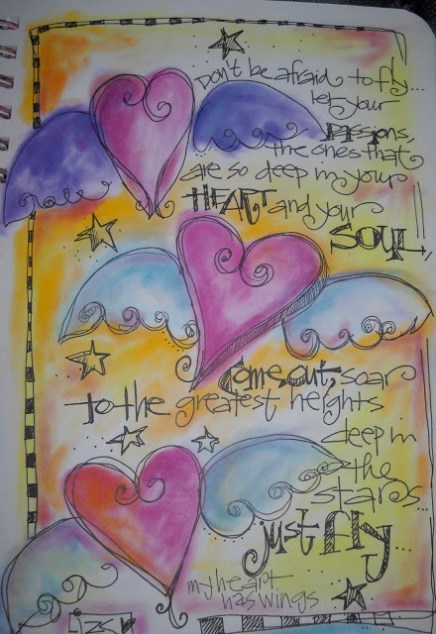 Don't be afraid to fly...
let your
PASSIONS,
the ones that
are so deep in your
HEART and your
SOUL,
Come out, soar
to the greatest heights
deep in
the
stars
just fly
my heart
has wings